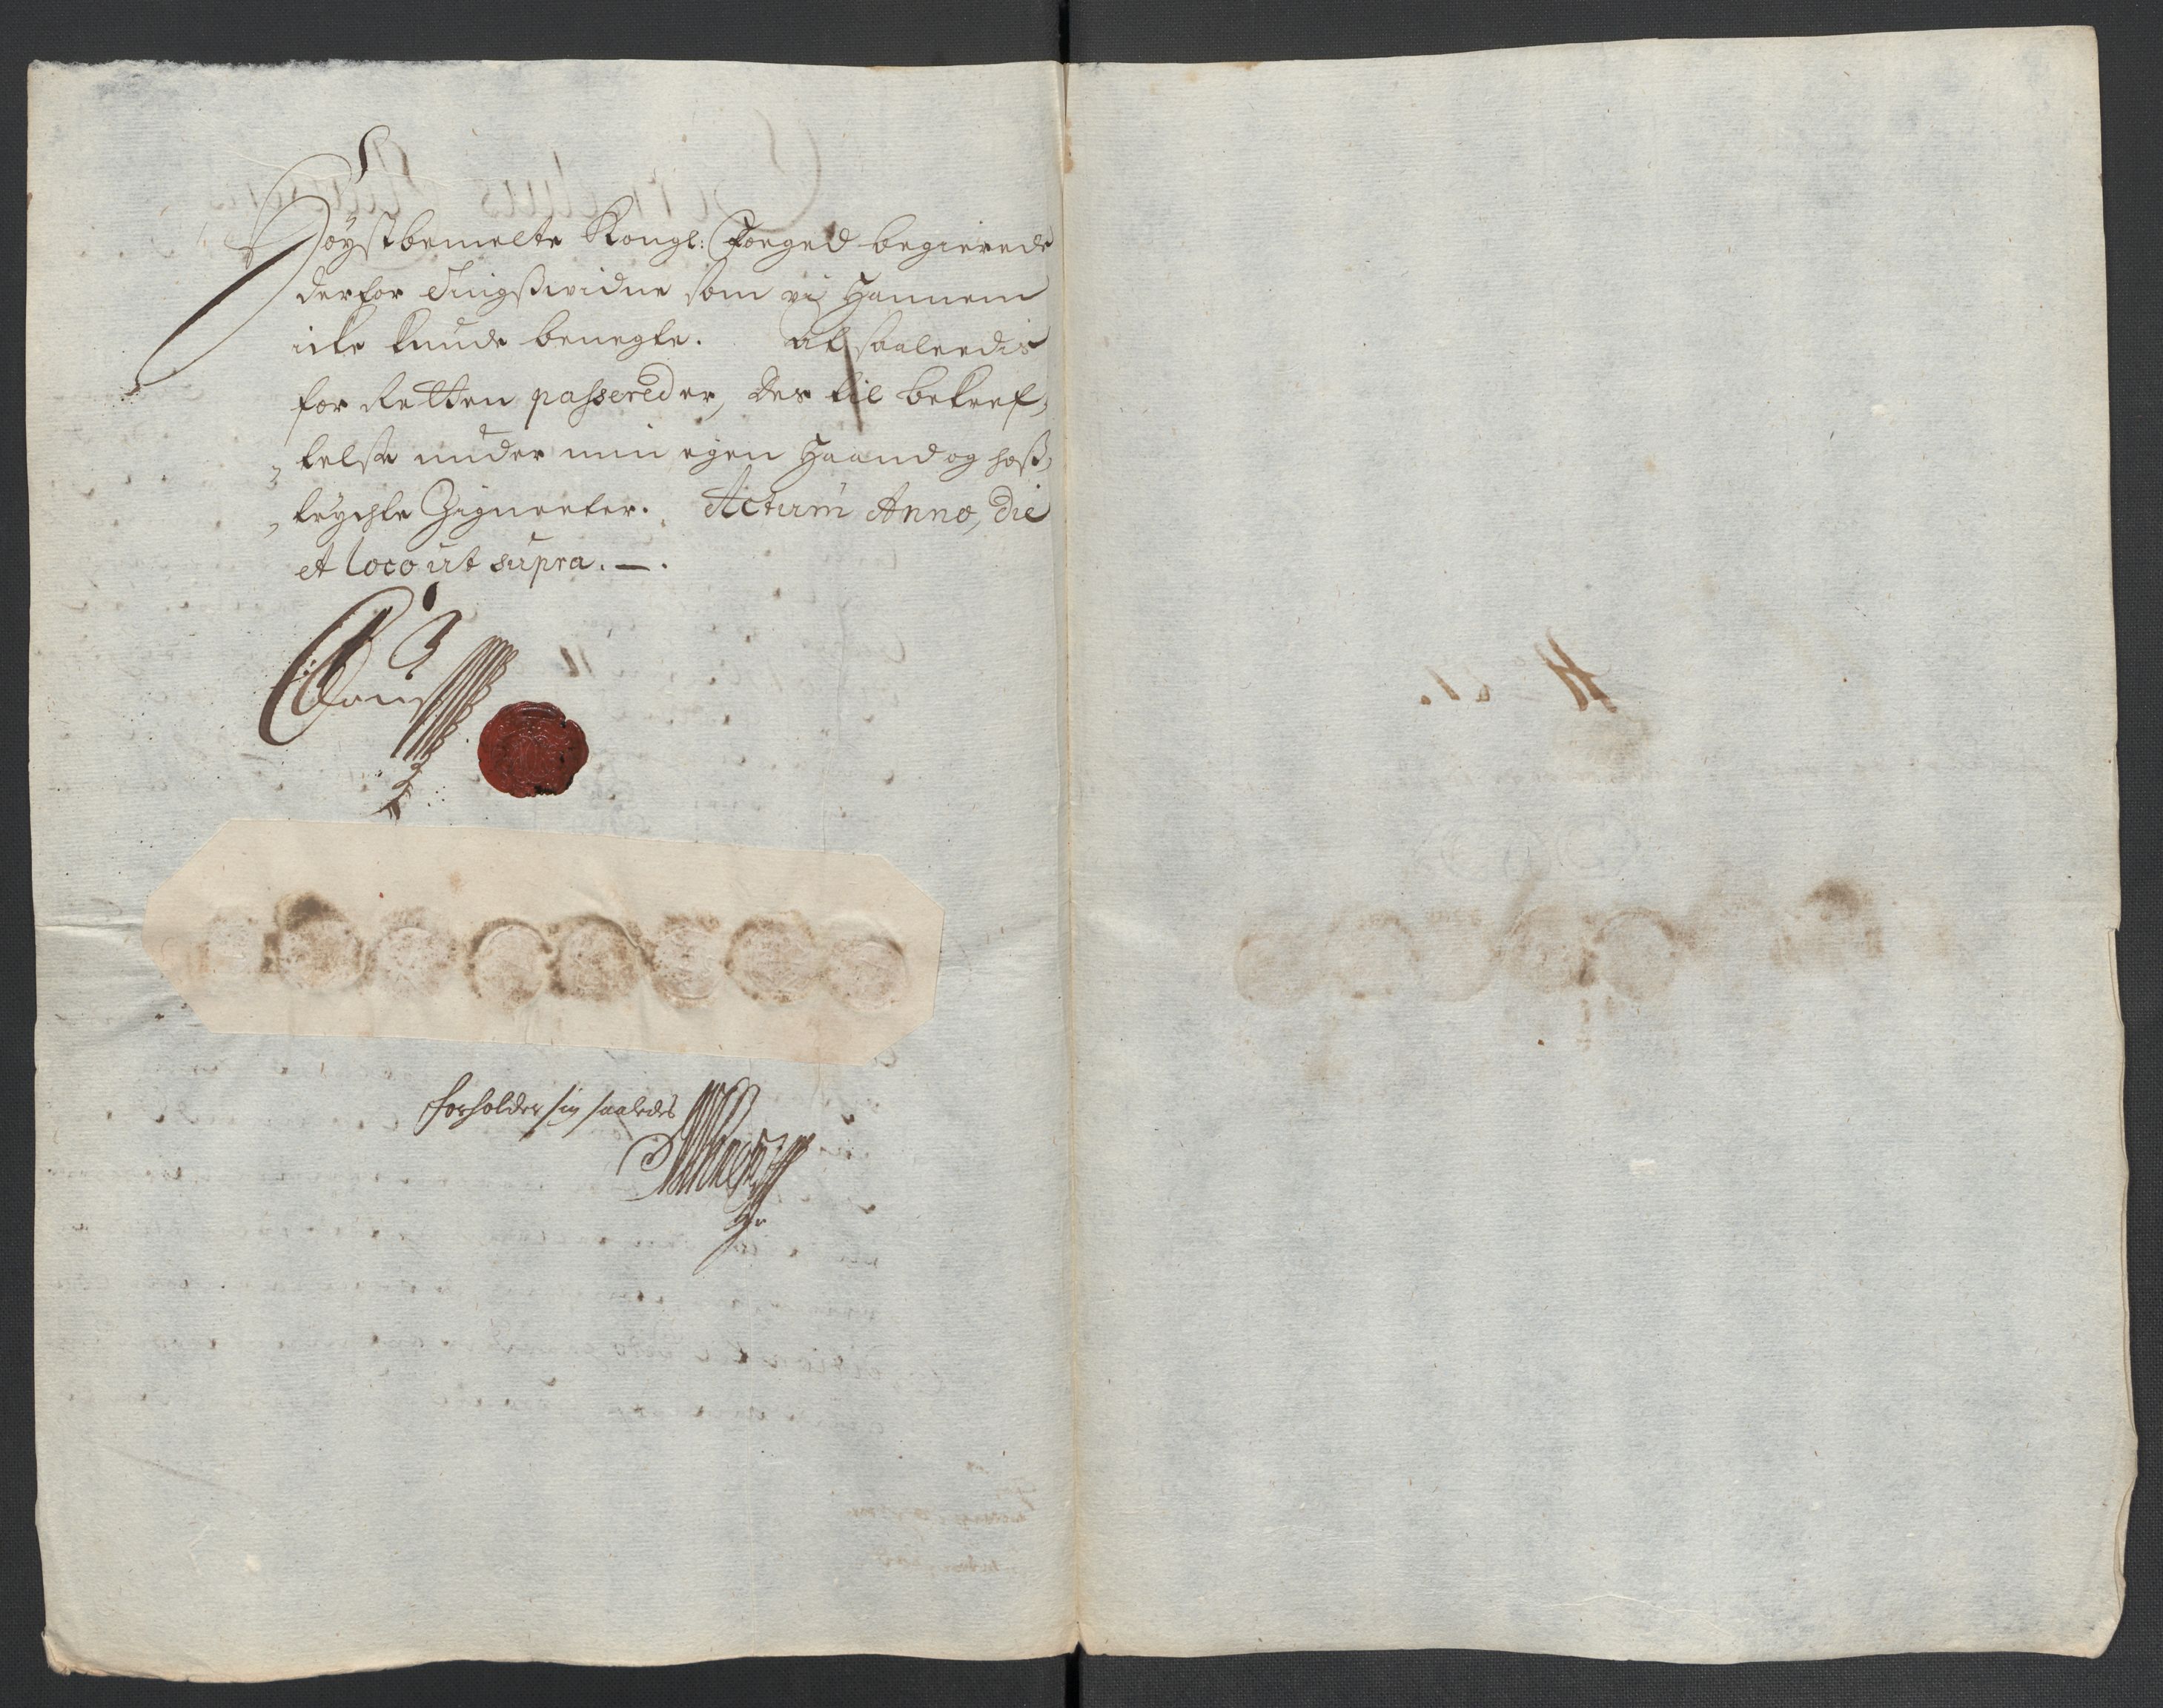 Høystbemelte Kongl: Foeged begierede
derfor Tingswidne som vi Hannem
icke kunde benegte. At saaleedis
for Retten passered er, Des til bekref,
„telse under min egen Haand og hoß,
„trychte Zigneeter. Actum Anno, die
et loco ut supra. —.
forholder sig saaledes